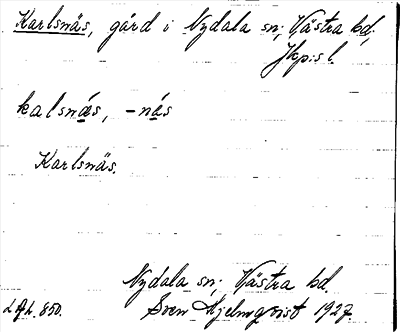 Karlsnäs, gård i Nydala sn; Västra hd,
Jkp:s l.
kalsnä́s, -nás
Karlsnäs.
Nydala sn; Västra hd.
L.A.L. 850. Sven Hjelmqvist 1927